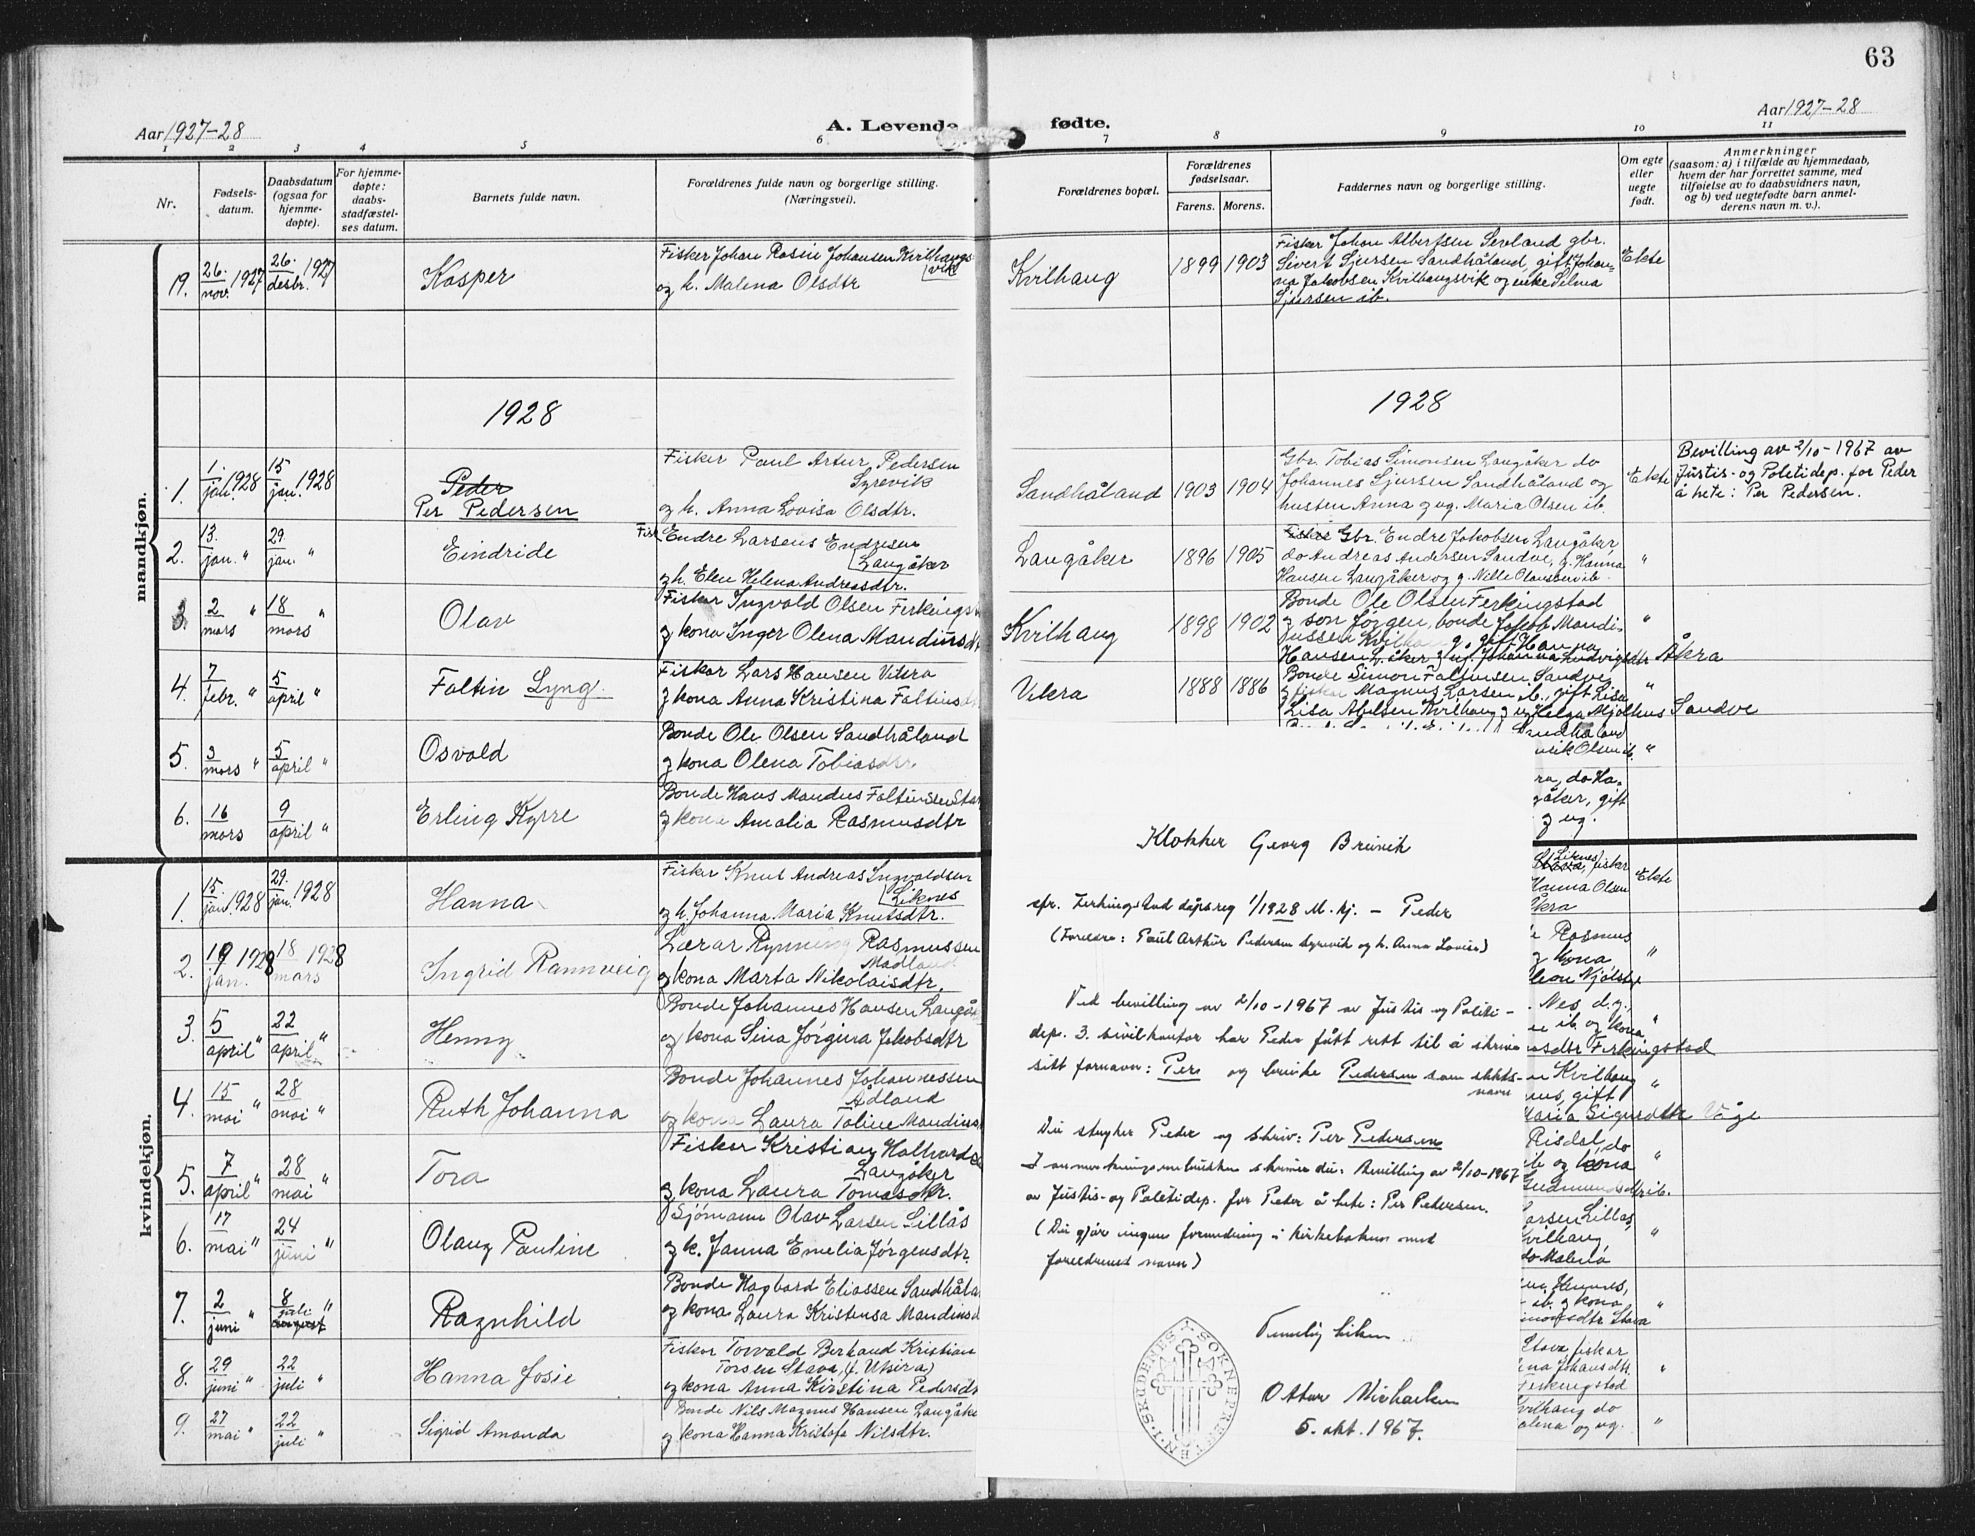 63
Aar 1927-28
A. Levende
fødte.
Aar 1927-28
1 2 3 4 5 6 7 8 9 10 11
Nr.
Fødsels-
datum.
Daabsdatum
(ogsaa for
hjemme-
døpte).
For hjemme-
døpte:
daabs-
stadfæstel-
ses datum.
Barnets fulde navn.
Forældrenes fulde navn og borgerlige stilling.
(Næringsvei).
Forældrenes bopæl.
Forældrenes
fødselsaar.
Farens. Morens.
Faddernes navn og borgerlige stilling.
Om egte
eller
uegte
født.
Anmerkninger
(saasom: a) i tilfælde av hjemmedaab,
hvem der har forrettet samme, med
tilføielse av to daabsvidners navn,
og b) ved uegtefødte barn anmel-
derens navn m. v.).
mandkjøn.
19. 26. nov. 1927 26. desbr. 1927
Kasper
Fisker Johan Rasin Johansen Kvilhaugs-
vik
og h. Malena Olsdtr
Kvilhaug
1899 1903
Fisker Johan Albertsen Sevland gbr.
Sivert Sjursen Sandhåland, gift Johan-
na Jakobsen Kvilhaugsvik og enke Selma
Sjursen ib.
Ekte
1928
1928
1. 1. jan. 1928 15 jan. 1928
Peder
Per Pedersen
Fisker Paul Artur Pedersen
Syrevik
og h. Anna Lovisa Olsdtr.
Sandhåland
1903 1904
Gbr. Tobias Simonsen Langåker do
Johannes Sjursen Sandhåland og
hustru Anna og ug. Maria Olsen ib.
Ekte
Bevilling av 2/10-1967 av
Justis- og Politidep. for Peder
å hete: Per Pedersen.
2. 13. jan. " 29. jan. "
Eindride
Fisk. Endre Larsens Endresen
Langåker
og h. Elen Helena Andreasdtr.
Langåker
1896 1905
Fisker Gbr. Endre Jakobsen Langåker
do Andreas Andersen Sandve, g. Hanna
Hansen Langåker og g. Nille
"
3. 2 mars " 18 mars "
Olav
Fisker Ingvald Olsen Ferkingst
og kona Inger Olena Mandiusdt
Kvilhaug
1898 1902
Bonde Ole Olsen Ferkingstad
og son Jørgen, bonde Jakob Mandi-
ussen Kvilhaug, gift Hanna
Hansen L.åker og ug. Johanna Ludvigsdtr Åkra
"
4. 7 febr. " 5 april "
Faltin Lyng.
Fisker Lars Hansen Vikra
og kona Anna Kristina Faltinsd
Vikra
1888 1886
Bonde Simon Faltinsen Sandve
og fisker Magnus Larsen ib., gift Lisa
Lisa Abelsen Kvilhaug og ug Helga Mjølhus Sandve
"
5. 3 mars " 5 april "
Osvald
Bonde Ole Olsen Sandhåland
og kona Olena Tobiasdtr.
Sandhåland
vik Olsen ib.
"
6. 16 mars 9 april "
Erling Kyrre
Bonde Hans Mandius Faltinsen Sta
og kona Amalia Rasmusdtr
ra, do Ha-
gåker, gift
og ug.
kvindekjøn.
1. 15. jan. 1928 29. jan. 1928
Hanna
Fisker Knut Andreas Ingvaldsen
Liknes
og h. Johanna Maria Knutsdtr.
Liknes
Stava, fisker
Hanna Olsen
Vikra
Ekte
2. 19 jan. 1928 18 mars 1928
Ingrid Rannveig
Lærar Rynning Rasmussen
Madland
og kona Marta Nikolaisdtr.
Rasmus
og kona
"
3 5 april " 22 april "
Henny
Bonde Johannes Hansen Langå
og kona Sina Jørgina Jakobsdtr
Nes d.y.,
ne ib. og kona
sdtr Ferkingstad
"
4. 15 mai " 28 mai "
Ruth Johanna
Bonde Johannes Johannessen
Ådland
og kona Laura Toline Mandiuss
ne Kvilhaug
nus, gift
Maria Sigurdtr Våge
"
5. 7 april " 28 mai "
Tora
Fisker Kristian Halvards
Langåker
og kona Laura Tomasdtr.
Risdal, do
ib og kona
Gudmundsdtr ib.
"
6. 17 mai " 24 juni "
Olaug Pauline
Sjømann Olav Larsen Lillås
og k. Janna Emelia Jørgensdtr.
Larsen Lillås,
Kvilhaug
do Malena
"
7. 2 juni " 8 juli " august
Ragnhild
Bonde Hagbard Eliassen Sandhåla
og kona Laura Kristensa Mandiusd
Hemnes,
ib. og kona
Simonsdtr Stava
"
8. 29 juni " 22 juli "
Hanna Josie
Fisker Torvald Bertrand Kristian
Torsen Stava (f. Utsira)
og kona Anna Kirstina Pedersdt
Stava fisker
lena Johansdtr.
Ferkingstad
"
9. 27 mai " 22 juli "
Sigrid Amanda
Bonde Nils Magnus Hansen Langåke
og kona Hanna Kristofa Nilsdtr.
Kvilhaug do
Malena og ug.
"
Klokker Georg Breivik
spr. Ferkingstad dåpsreg 1/1928 M. kj. - Peder
(Foreldre: Paul Arthur Pedersen Syrevik og h. Anna Lovise)
Ved bevilling av 2/10-1967 av Justis og Politi-
dep. 3. sivilkontor har Peder fått rett til å skrive
sitt fornavn: Per og bruke Pedersen som slekts-
navn
Du stryker Peder og skriv: Per Pedersen
I anmerkningsrubrikken skriver du: Bevilling av 2/10-1967
av Justis- og Politidep. for Peder å hete: Per Pedersen.
(Du gjør ingen forandring i kirkeboken med
foreldrenes navn)
Vennlig hilsen
Ottar Michaelsen
5. okt. 1967.
SOKNEPRESTEN I SKUDENES